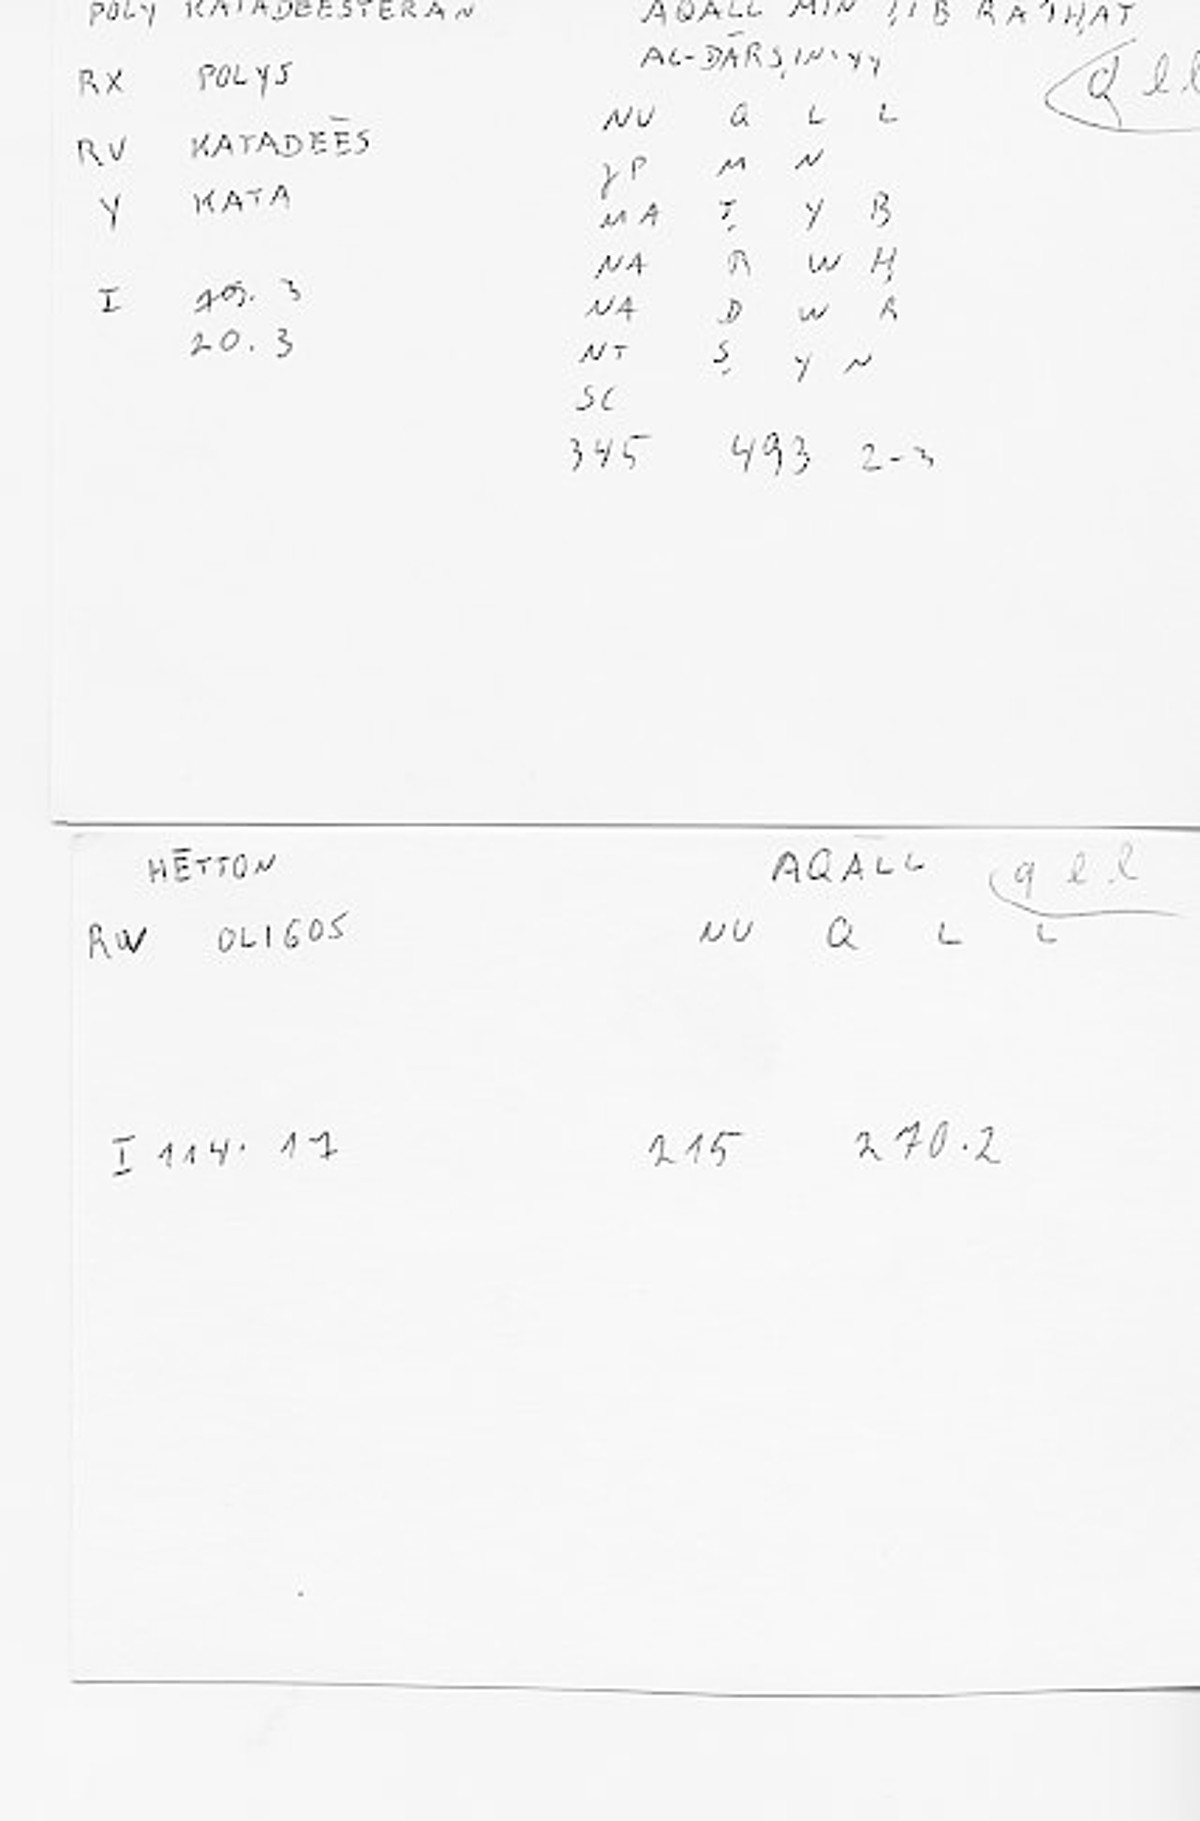 POLY KATADEESTERAN
RX POLYS
RV KATADEĒS
Y KATA
I 19. 3
20. 3
AQALL MIN ṬIB RA'IḤAT
AL-DĀRṢINIYY
NU Q L L
P M N
MA Ṭ Y B
NA R W Ḥ
NA D W R
NT Ṣ Y N
SC
345 493 2-3
q l l
HĒTTON
RW OLIGOS
I 114. 17
AQALL
q l l
NU Q L L
215 270.2